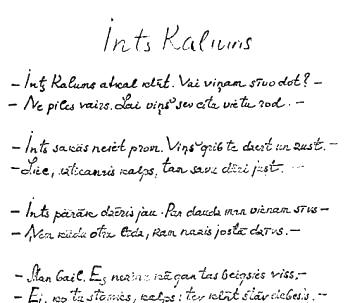 Ints Kalniņš
– Ints Kalums atkal klāt. Vai viņam sīvo dot? –
– Ne piles vairs. Lai viņš sev citu vietu rod. –
– Ints sakās neiet prom. Viņš grib te dzert un zust. –
– Liec, uzticamais kalps, tam savu dūri just. –
– Ints pārāk dzēris jau. Par daudz man vienam sīvs –
– Ņem kādu otru līdz, kam nazis jostā dzīvs. –
– Man bail. Es nezinu kā gan tas beigsies viss. –
– Ej, ko tu stomies, kalps: tev klint stāv debesis. –